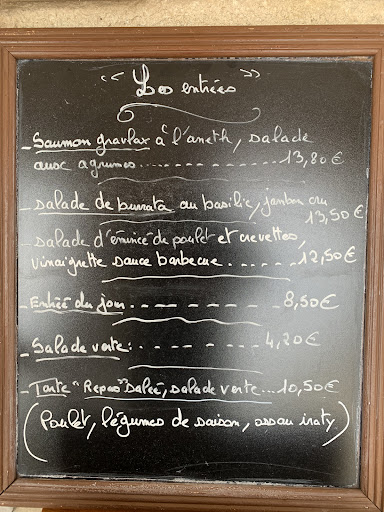 " Les entrées "
- Saumon gravlax à l'aneth, salade
aux agrumes ............ 13,80€
- salade de burrata au basilic, jambon cru
13,50€
- salade d'émincé de poulet et crevettes,
vinaigrette sauce barbecue ...... 12,50€
- Entrée du jour. - - - - - - - 8,50€
- Salade verte: . - - - - - - 4,20€
- Tarte "Repas" Salée, salade verte ... 10,50€
(Poulet, légumes de saison, ossau iraty)